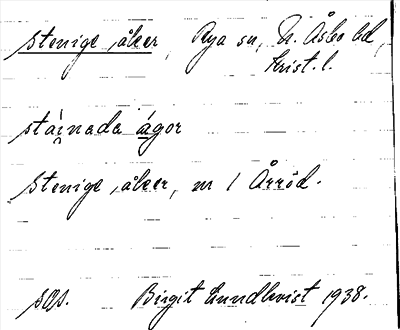 stenige åker, Rya sn, N. Åsbo hd,
Krist. l.
stai̯nada ágor
Stenige åker, nr 1 Årröd.
sgs. Birgit Lundkvist 1938.